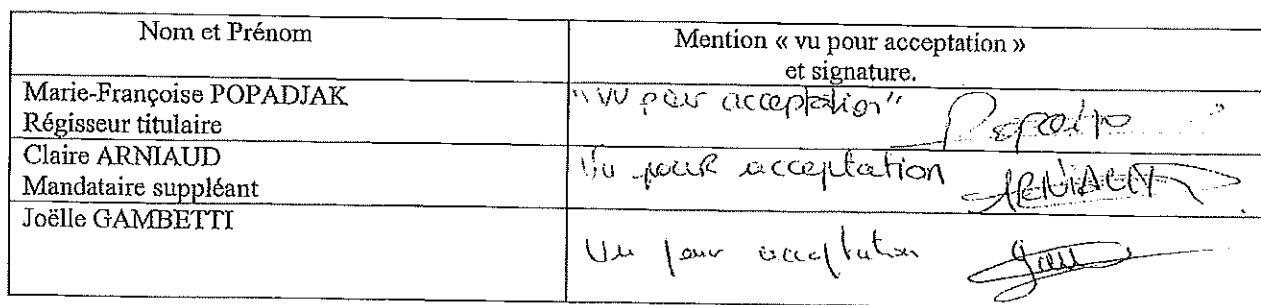 Nom et Prénom
Mention « vu pour acceptation »
et signature.
Marie-Françoise POPADJAK
Régisseur titulaire
"vu pour acceptation"
Claire ARNIAUD
Mandataire suppléant
Vu pour acceptation ARNIAUD
Joëlle GAMBETTI
Vu pour acceptation